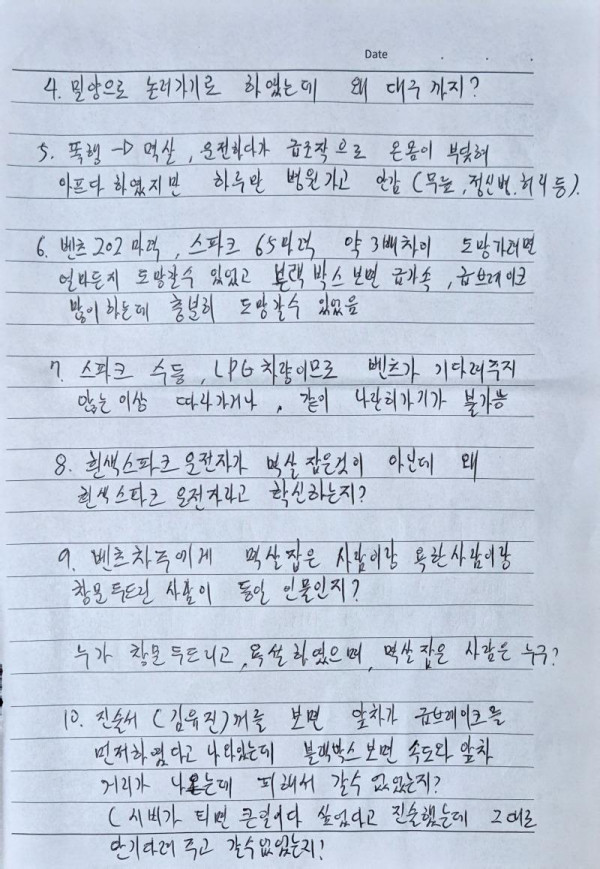 Date . . .
4. 밀양으로 놀러가기로 하였는데 왜 대구까지?
5. 폭행 → 멱살, 운전하다가 급조작으로 온몸이 부딪혀
아프다 하였지만 하루만 병원가고 안감 (무릎, 정신병, 허리 등).
6. 벤츠 202마력, 스파크 65마력 약 3배차이 도망가려면
얼마든지 도망갈수 있었고 블랙박스 보면 급가속, 급브레이크
많이 하는데 충분히 도망갈수 있었음
7. 스파크 수동, LPG차량이므로 벤츠가 기다려주지
않는이상 따라가거나, 같이 나란히가기가 불가능
8. 흰색스파크 운전자가 멱살 잡은것이 아닌데 왜
흰색스파크 운전자라고 확신하는지?
9. 벤츠차주에게 멱살잡은 사람이랑 욕한사람이랑
창문 두드린 사람이 동일 인물인지?
누가 창문 두드리고, 욕설하였으며, 멱살 잡은 사람은 누구?
10. 진술서 (김유진)꺼를 보면 앞차가 급브레이크를
먼저하였다고 나와있는데 블랙박스 보면 속도와 앞차
거리가 나오는데 피해서 갈수 없었는지?
(시비가 되면 큰일이다 싶었다고 진술했는데 그대로
안기다려주고 갈수없었는지!